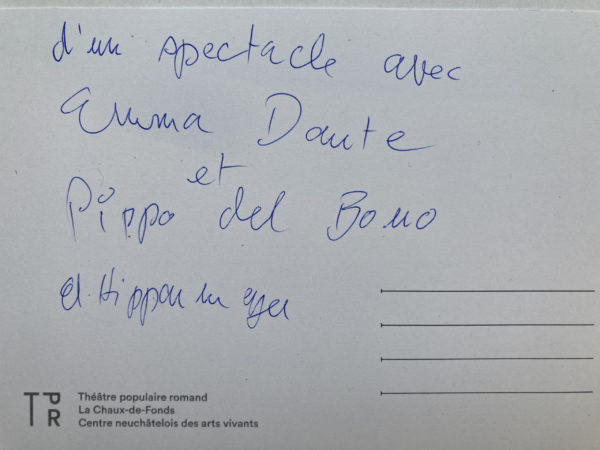 d'un spectacle avec
Emma Dante
et
Pippo del Bono
TPR
Théâtre populaire romand
La Chaux-de-Fonds
Centre neuchâtelois des arts vivants